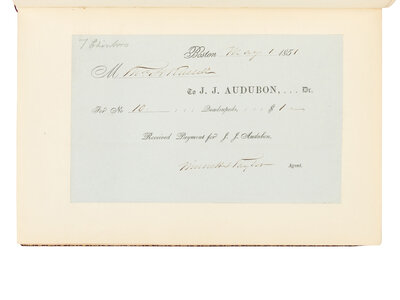 Boston May 1 1851
M
To J. J. AUDUBON, . . . Dr.
For No 10 . . . Quadrupeds, . . . $ 1
Received Payment for J. J. Audubon,
Taylor Agent.